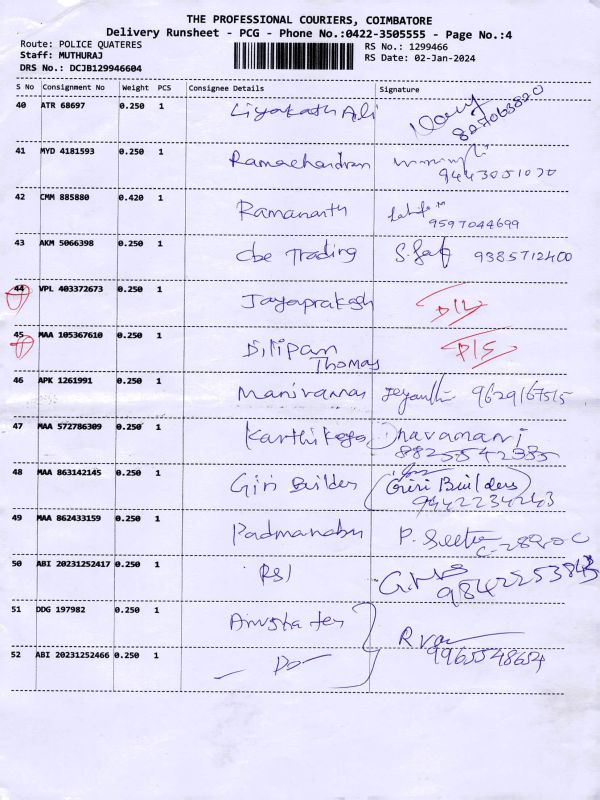 THE PROFESSIONAL COURIERS, COIMBATORE
Delivery Runsheet - PCG - Phone No.:0422-3505555 - Page No.:4
Route: POLICE QUATERES RS No.: 1299466
Staff: MUTHURAJ RS Date: 02-Jan-2024
DRS No.: DCJB129946604
S No Consignment No Weight PCS Consignee Details Signature
40 ATR 68697 0.250 1 Liyakath Ali
41 MYD 4181593 0.250 1 Ramachandran
9443051070
42 CMM 885880 0.420 1 Ramananth
9597044699
43 AKM 5066398 0.250 1 Cbe Trading 9385712400
44 VPL 403372673 0.250 1 Jayaprakash D/L
45 MAA 105367610 0.250 1 Dilipan
Thomas
46 APK 1261991 0.250 1 Manivannan Jeyanthi 9629167515
47 MAA 572786309 0.250 1 Dhavamani
48 MAA 863142145 0.250 1 Giri Builder Giri Builders
9442234243
49 MAA 862433159 0.250 1 Padmanabn
50 ABI 20231252417 0.250 1 RSI
51 DDG 197982 0.250 1
9965548654
52 ABI 20231252466 0.250 1 - Do -